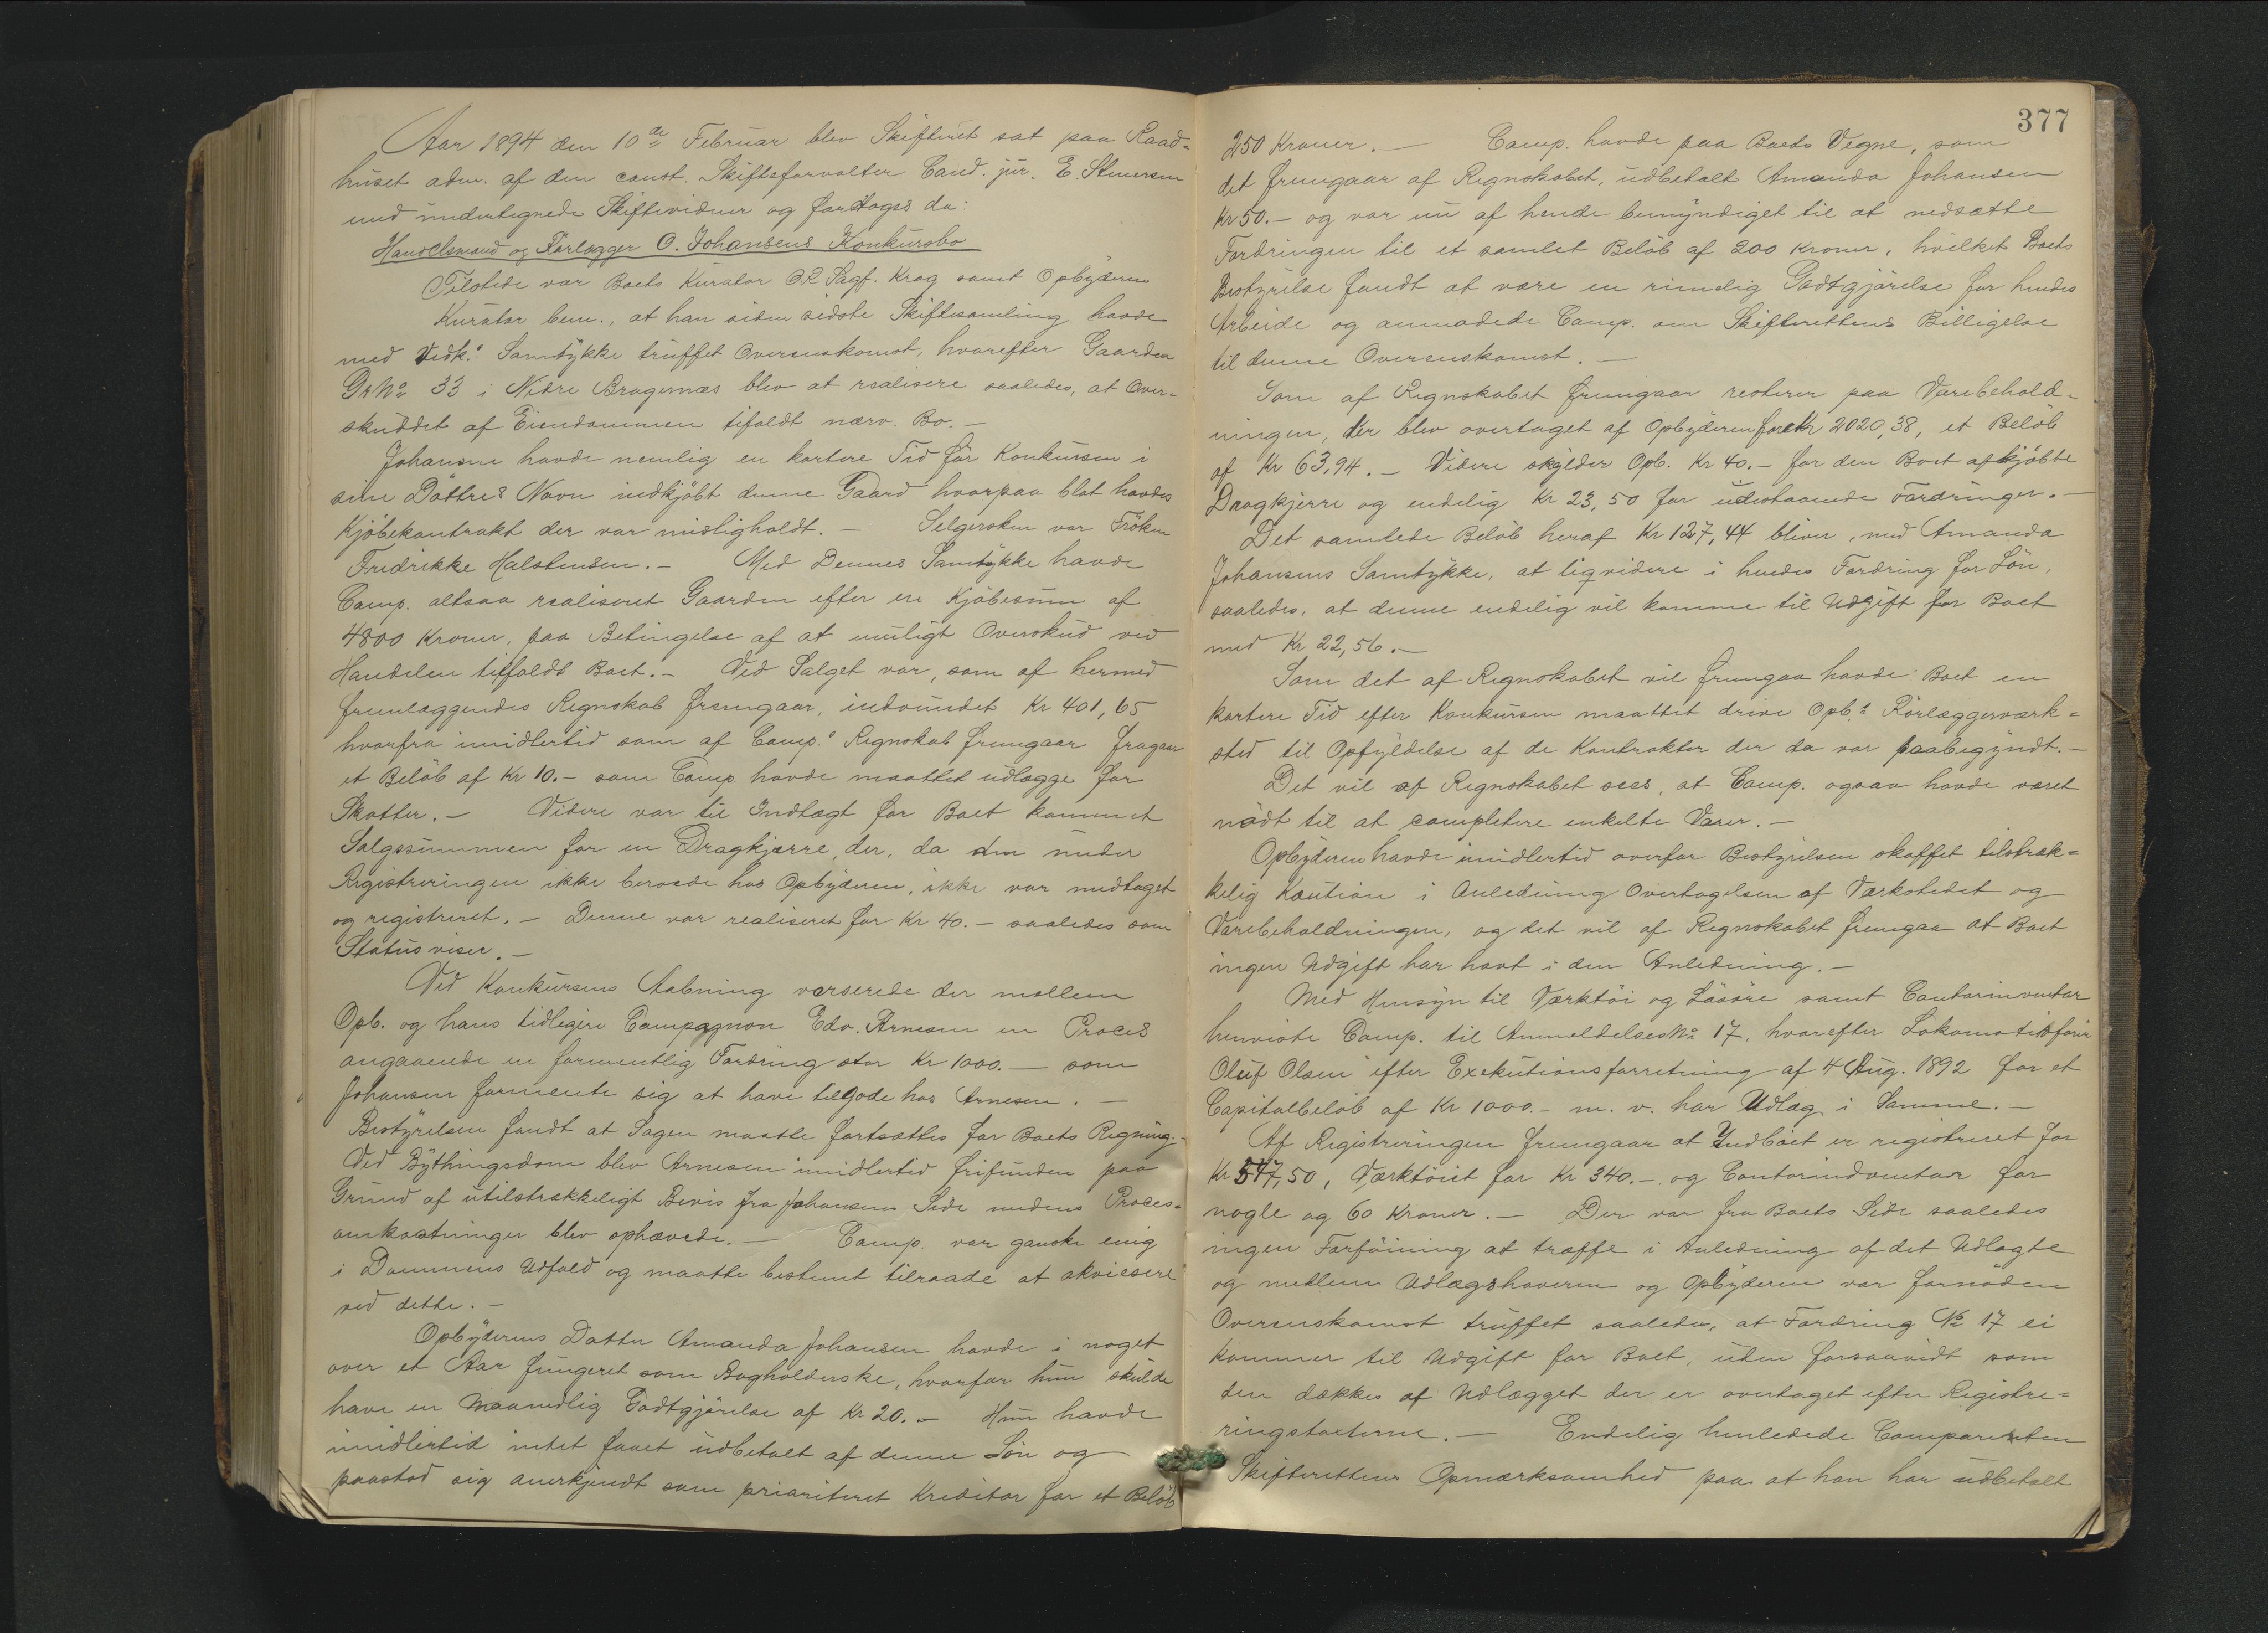 Aar 1894 den 10de Februar blev Skifteret sat paa Raad-
huset adm. af den const. Skifteforvalter Cand. jur. E. Stenersen
med undertegnede Skiftevidner og foretoges da:
Handelsmand og Rørlægger O. Johansens Konkursbo
Tilstede var Boets Kurator O.R. Sagf. Krag samt Opbyderen
Kurator bem., at han siden sidste Skiftesamling havde
med Vedk.s Samtykke truffet Overenskomst, hvorefter Gaarden
Gr No 33 i Nedre Bragernæs blev at realisere saaledes, at Over-
skuddet af Eiendommen tifaldt nærv. Bo. —
Johansen havde nemlig en kortere Tid før Konkursen i
sine Døttres Navn indkjøbt denne Gaard hvorpaa blot havdes
Kjøbekontrakt der var misligholdt. — Selgersken var Frøken
Fredrikke Halstensen. — Med Dennes Samtykke havde
Comp. altsaa realiseret Gaarden efter en Kjøbesum af
4800 Kroner, paa Betingelse af at muligt Overskud ved
Handelen tilfaldt Boet. — Ved Salget var, som af hermed
fremlæggendes Regnskab fremgaar, indvundet Kr 401,65
hvorfra imidlertid som af Comp.s Regnskab fremgaar fragaar
et Beløb af Kr 10. — som Comp. havde maattet udlægge for
Skatter. — Videre var til Indtægt for Boet kommet
Salgssummen for en Dragkjærre, der, da den under
Registreringen ikke beroede hos Opbyderen, ikke var medtaget
og registreret. — Denne var realiseret for Kr 40. — saaledes som
Status viser. —
Ved Konkursens Aabning verserede der mellem
Opb. og hans tidligere Compagnon Edv. Arnesen en Proces
angaaende en formentlig Fordring stor Kr 1000. — som
Johansen formente sig at have tilgode hos Arnesen. —
Bestyrelsen fandt at Sagen maatte fortsættes for Boets Regning. —
Ved Bythingsdom blev Arnesen imidlertid frifunden paa
Grund af utilstrækkeligt Bevis fra Johansens Side medens Proces-
omkostninger blev ophævede. — Comp. var ganske enig
i Dommens Udfald og maatte bestemt tilraade at akviesere
ved dette. —
Opbyderens Datter Amanda Johansen havde i noget
over et Aar fungeret som Bogholderske, hvorfor hun skulde
have en maanedlig Godtgjørelse af Kr 20. — Hun havde
imidlertid intet faaet udbetalt af denne Løn og
paastod sig anerkjendt som prioriteret Kreditor for et Beløb
377
250 Kroner. — Comp. havde paa Boets Vegne, som
det fremgaar af Regnskabet, udbetalt Amanda Johansen
Kr 50. — og var nu af hende bemyndiget til at nedsætte
Fordringen til et samlet Beløb af 200 Kroner, hvilket Boets
Bestyrelse fandt at være en rimelig Godtgjørelse for hendes
Arbeide og anmodede Comp. om Skifterettens Billigelse
til denne Overenskomst. —
Som af Regnskabet fremgaar resterer paa Varebehold-
ningen, der blev overtaget af Opbyderen for Kr 2020,38, et Beløb
af Kr 63,94. — Videre skylder Opb. Kr 40. — for den Boet afkjøbte
Dragkjerre og endelig Kr 23,50 for udestaaende Fordringer. —
Det samlede Beløb heraf Kr 127,44 bliver, med Amanda
Johansens Samtykke, at liqvidere i hendes Fordring for Løn,
saaledes, at denne endelig vil komme til Udgift for Boet
med Kr 22,56. —
Som det af Regnskabet vil fremgaa havde Boet en
kortere Tid efter Konkursen maattet drive Opb.s Rørlæggerværk-
sted til Opfyldelse af de Kontrakter der da var paabegyndt. —
Det vil af Regnskabet sees, at Comp. ogsaa havde været
nødt til at completere enkelte Varer. —
Opbyderen havde imidlertid overfor Bestyrelsen skaffet tilstræk-
kelig Kaution i Anledning Overtagelsen af Værkstedet og
Varebeholdningen, og det vil af Regnskabet fremgaa at Boet
ingen Udgift har havt i den Anledning. —
Med Hensyn til Værktøi og Løsøre samt Contorinventar
henviste Comp. til Anmeldelses No 17, hvorefter Lokomotivfører
Oluf Olsen efter Exekutionsforretning af 4 Aug. 1892 for et
Capitalbeløb af Kr 1000. — m. v. har Udlæg i Samme. —
Af Registreringen fremgaar at Indboet er registreret for
Kr 547,50, Værktøiet for Kr 340. — og Contorindventar for
nogle og 60 Kroner. — Der var fra Boets Side saaledes
ingen Forføining at træffe i Anledning af det Udlagte
og mellem Udlægshaveren og Opbyderen var fornøden
Overenskomst truffet saaledes, at Fordring No 17 ei
kommer til Udgift for Boet, uden forsaavidt som
den dækkes af Udlægget der er overtaget efter Registre-
ringstaxterne. — Endelig henledede Comparenten
Skifterettens Opmærksomhed paa at han har udbetalt